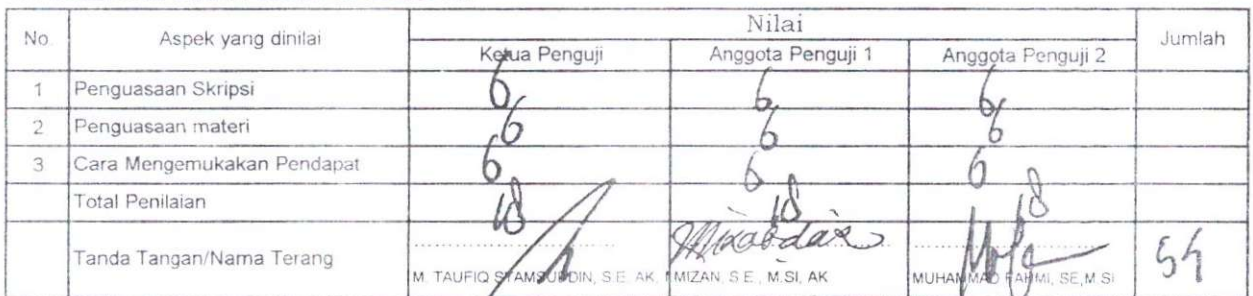 No. Aspek yang dinilai Nilai Jumlah
Ketua Penguji Anggota Penguji 1 Anggota Penguji 2
1 Penguasaan Skripsi 6 6 6
2 Penguasaan materi 6 6 6
3 Cara Mengemukakan Pendapat 6 6 6
Total Penilaian 18 18 18
Tanda Tangan/Nama Terang 54
M. TAUFIQ SYAMSUDDIN, S.E. AK, MIZAN, S.E., M.SI, AK MUHAMMAD FAHMI, SE,M.SI